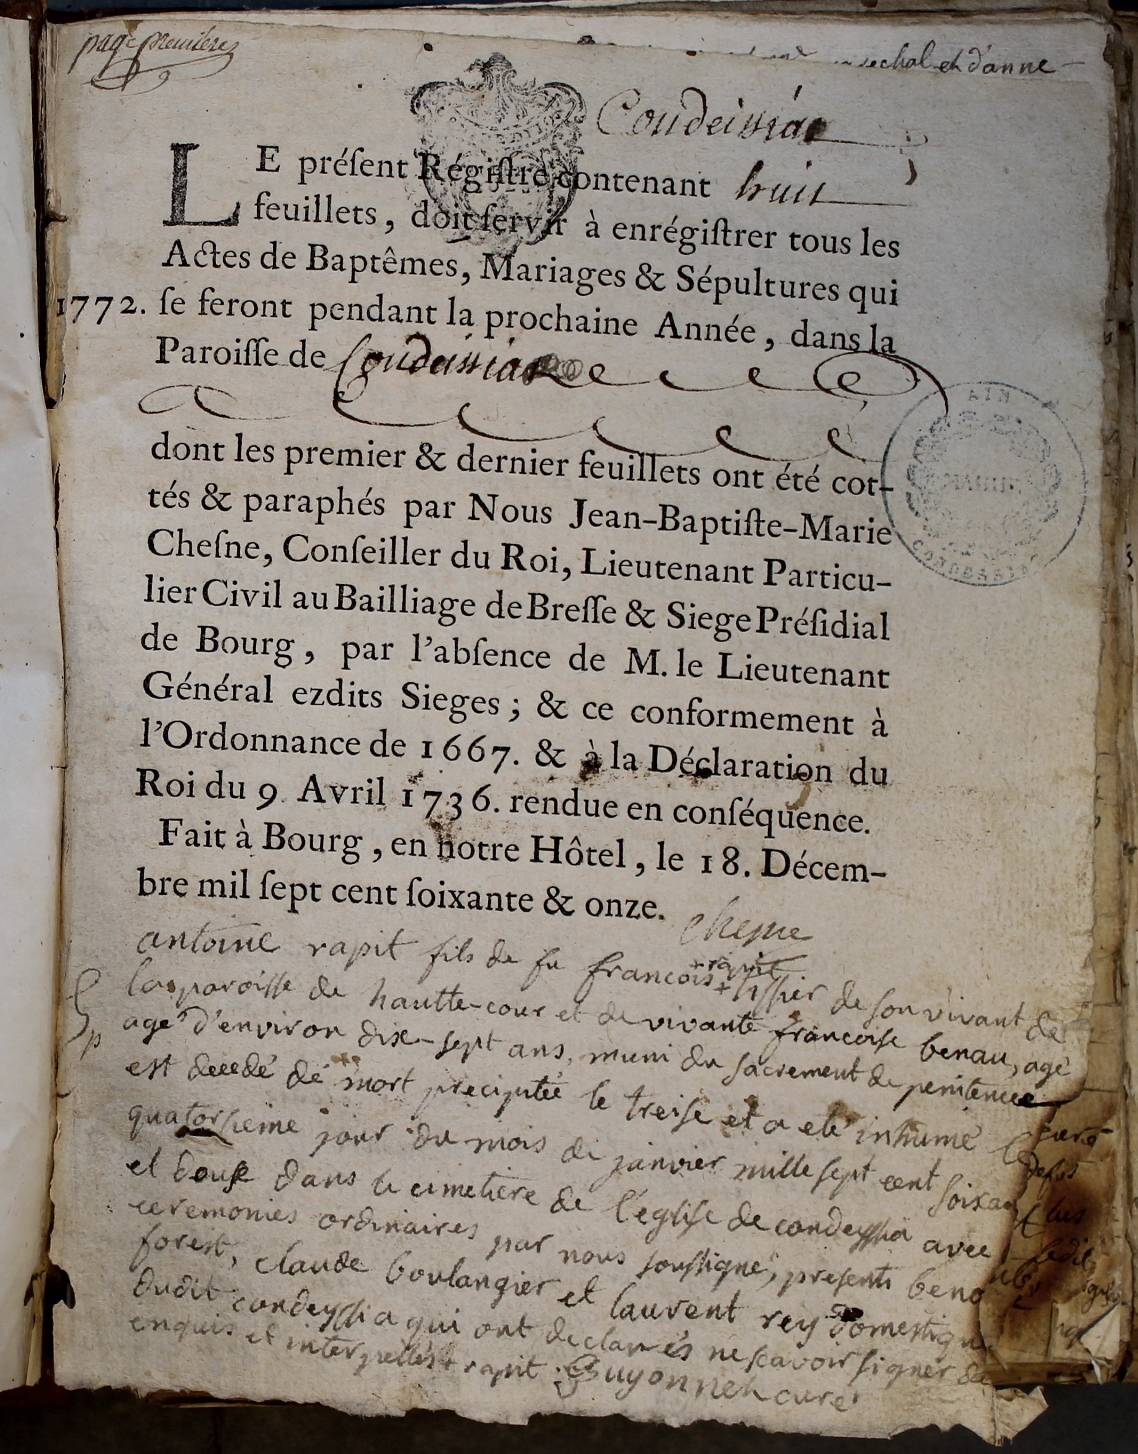 page premiere
et d'anne
Condeissiat
LE préſent Régiſtre contenant huit
feuillets, doit ſervir à enrégiſtrer tous les
Actes de Baptêmes, Mariages & Sépultures qui
1772. ſe feront pendant la prochaine Année, dans la
Paroiſſe de Condeissiat
dont les premier & dernier feuillets ont été cot-
tés & paraphés par Nous Jean-Baptiſte-Marie
Cheſne, Conſeiller du Roi, Lieutenant Particu-
lier Civil au Bailliage de Breſſe & Siege Préſidial
de Bourg, par l'abſence de M. le Lieutenant
Général ezdits Sieges; & ce conformement à
l'Ordonnance de 1667. & à la Déclaration du
Roi du 9 Avril 1736. rendue en conſéquence.
Fait à Bourg, en notre Hôtel, le 18. Décem-
bre mil ſept cent ſoixante & onze.
Chesne
antoine rapit fils de fu francois + rapit + tissier de son vivant de
la paroisse de hautte-cour et de vivante francoise benau, agé
agé d'environ dix-sept ans, muni du sacrement de penitence
est decedé de mort precipitée le treise et a eté inhumé le
quatorsieme jour du mois de janvier mille sept cent soixan
et douse dans le cimetiere de l'eglise de condeyssia avec l
ceremonies ordinaires par nous soussigné, presents beno
forest, claude boulangier et laurent rey domestiqu
dudit condeyssia qui ont declarés ne scavoir signer de
enquis et interpellés + rapit Guyonnet curé
AIN
MAIRIE
CONDEISSIAT